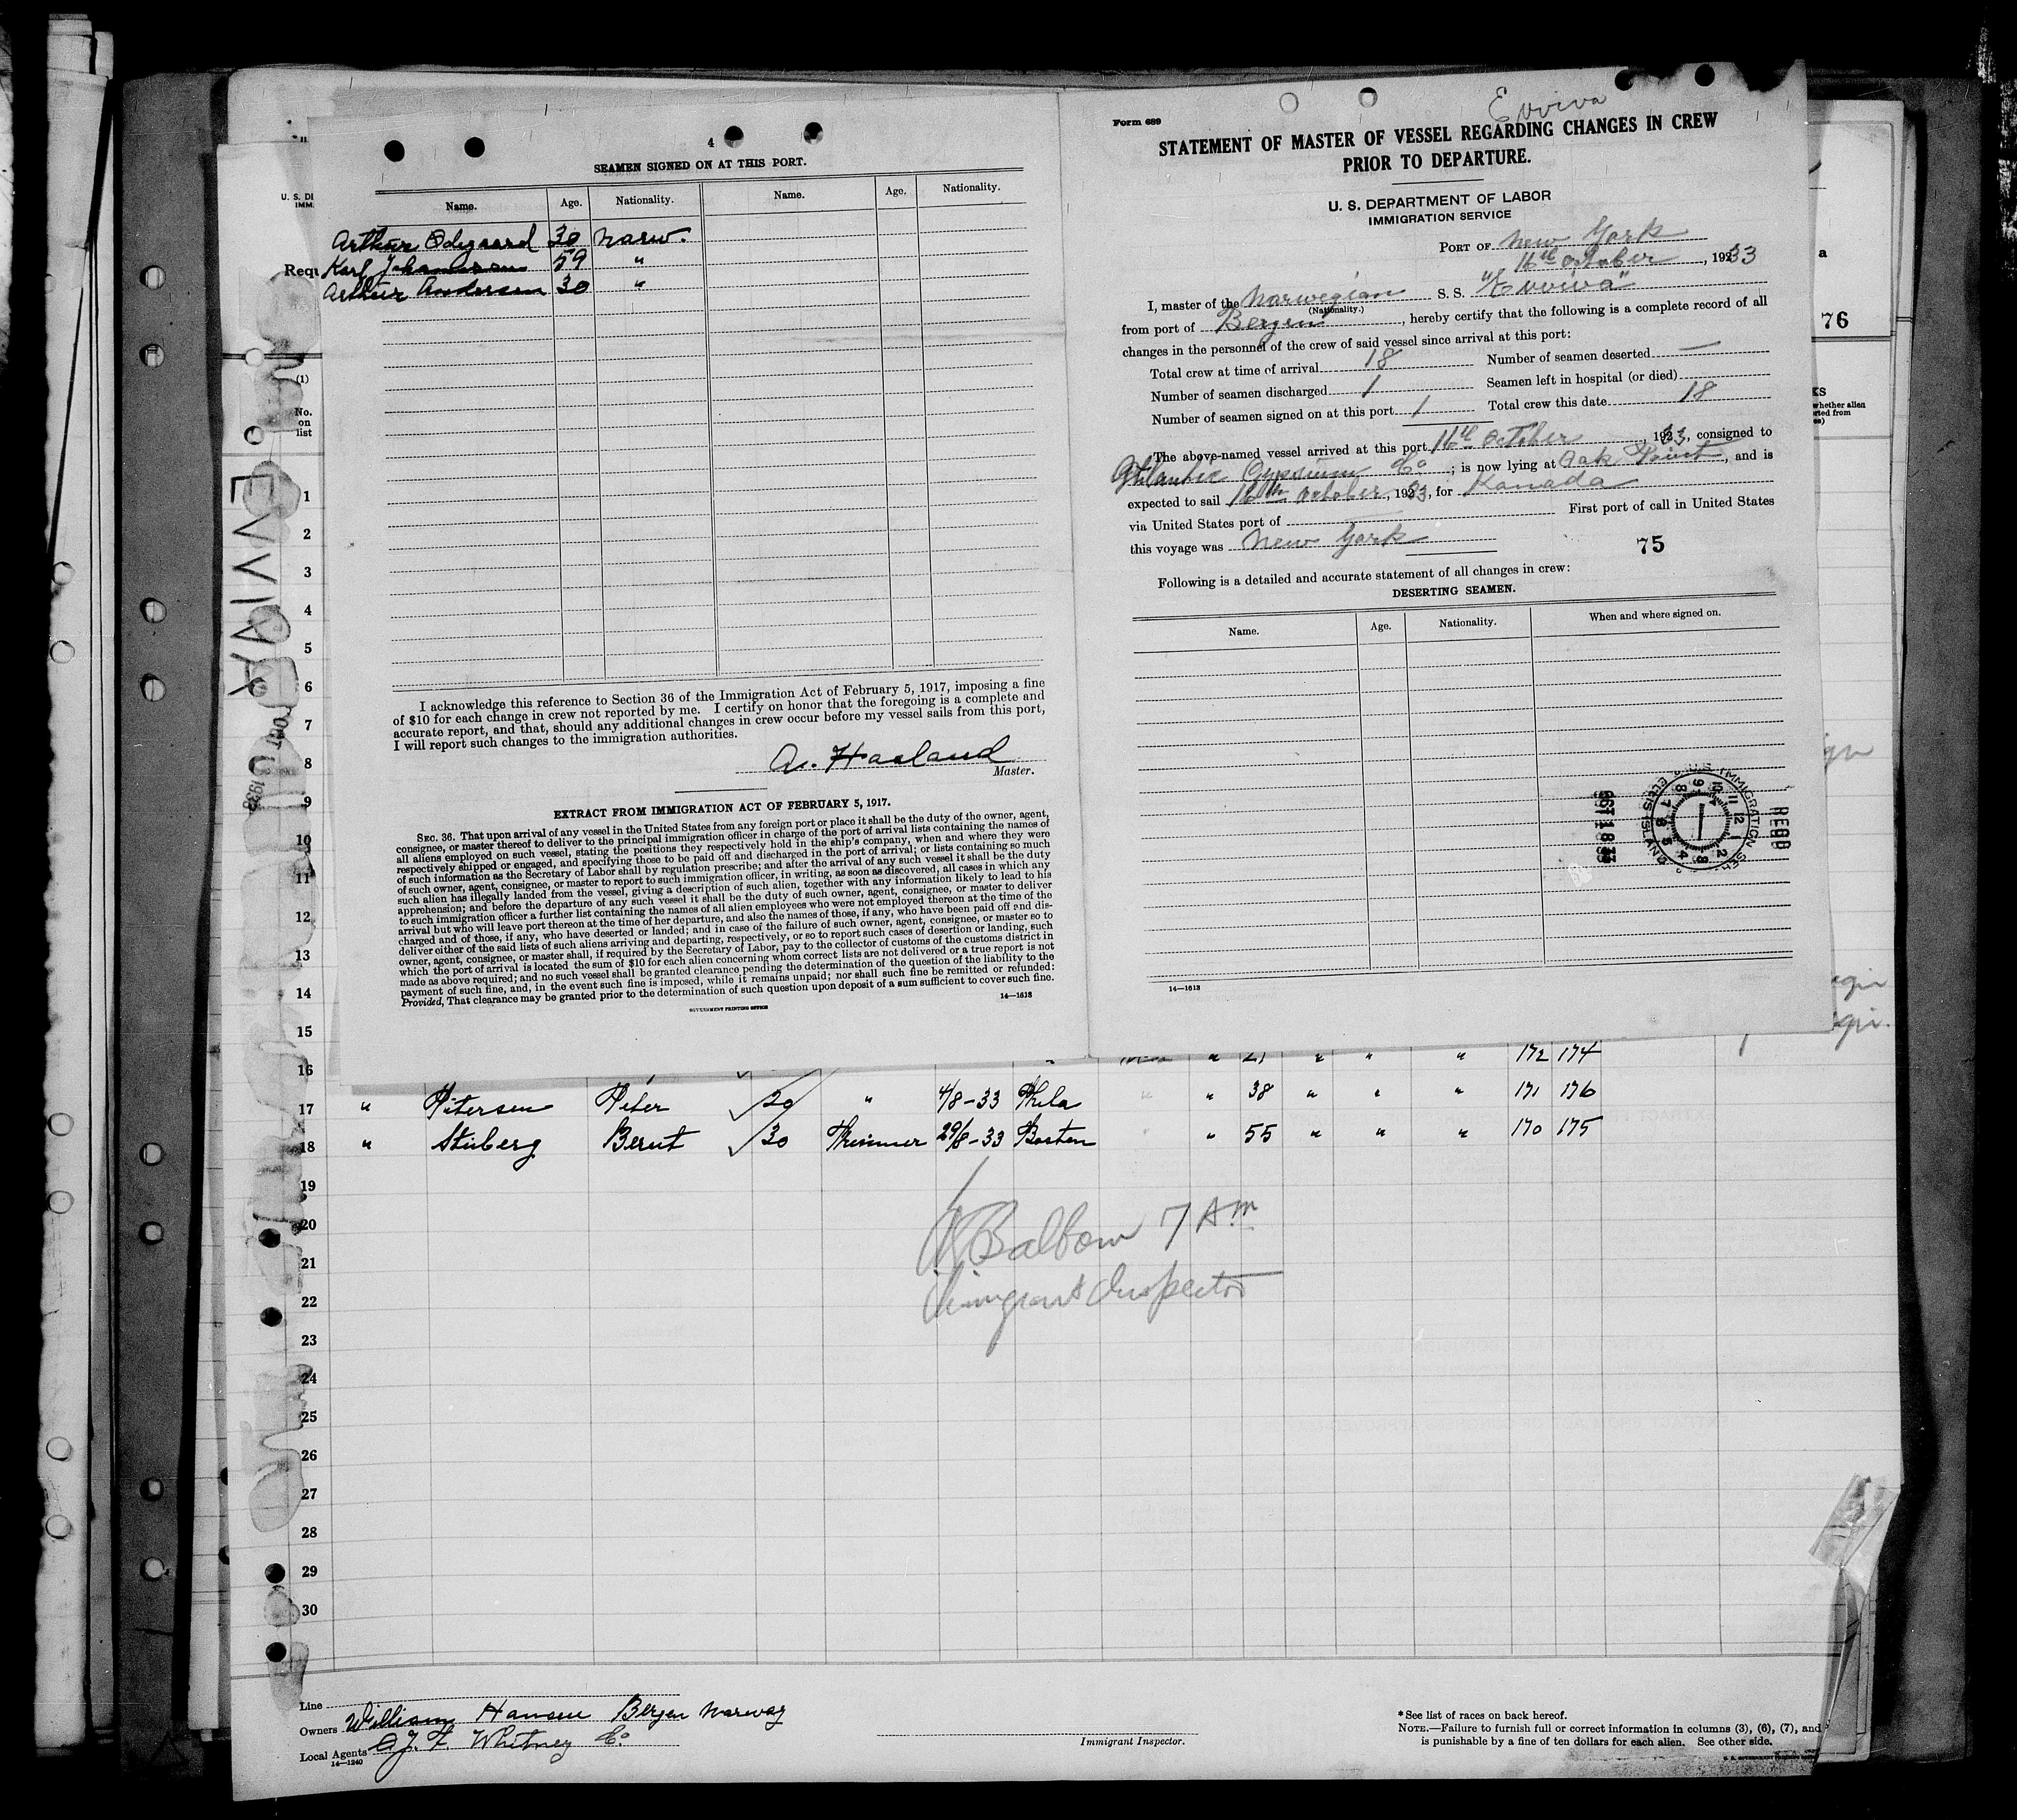 4
SEAMEN SIGNED ON AT THIS PORT.
Name. Age. Nationality. Name. Age. Nationality.
Arthur Odegaard 30 Norw.
Karl Johannessen 59 "
Arthur Andersen 30 "
I acknowledge this reference to Section 36 of the Immigration Act of February 5, 1917, imposing a fine
of $10 for each change in crew not reported by me. I certify on honor that the foregoing is a complete and
accurate report, and that, should any additional changes in crew occur before my vessel sails from this port,
I will report such changes to the immigration authorities.
A. Haaland
Master.
EXTRACT FROM IMMIGRATION ACT OF FEBRUARY 5, 1917.
SEC. 36. That upon arrival of any vessel in the United States from any foreign port or place it shall be the duty of the owner, agent,
consignee, or master thereof to deliver to the principal immigration officer in charge of the port of arrival lists containing the names of
all aliens employed on such vessel, stating the positions they respectively hold in the ship's company, when and where they were
respectively shipped or engaged, and specifying those to be paid off and discharged in the port of arrival; or lists containing so much
of such information as the Secretary of Labor shall by regulation prescribe; and after the arrival of any such vessel it shall be the duty
of such owner, agent, consignee, or master to report to such immigration officer, in writing, as soon as discovered, all cases in which any
such alien has illegally landed from the vessel, giving a description of such alien, together with any information likely to lead to his
apprehension; and before the departure of any such vessel it shall be the duty of such owner, agent, consignee, or master to deliver
to such immigration officer a further list containing the names of all alien employees who were not employed thereon at the time of the
arrival but who will leave port thereon at the time of her departure, and also the names of those, if any, who have been paid off and dis-
charged and of those, if any, who have deserted or landed; and in case of the failure of such owner, agent, consignee, or master so to
deliver either of the said lists of such aliens arriving and departing, respectively, or so to report such cases of desertion or landing, such
owner, agent, consignee, or master shall, if required by the Secretary of Labor, pay to the collector of customs of the customs district in
which the port of arrival is located the sum of $10 for each alien concerning whom correct lists are not delivered or a true report is not
made as above required; and no such vessel shall be granted clearance pending the determination of the question of the liability to the
payment of such fine, and, in the event such fine is imposed, while it remains unpaid; nor shall such fine be remitted or refunded:
Provided, That clearance may be granted prior to the determination of such question upon deposit of a sum sufficient to cover such fine.
GOVERNMENT PRINTING OFFICE 14—1613
Evviva
Form 689
STATEMENT OF MASTER OF VESSEL REGARDING CHANGES IN CREW
PRIOR TO DEPARTURE.
U. S. DEPARTMENT OF LABOR
IMMIGRATION SERVICE
PORT OF New York
16th October, 1933
I, master of the Norwegian S. S. "Evviva"
(Nationality.)
from port of Bergen, hereby certify that the following is a complete record of all
changes in the personnel of the crew of said vessel since arrival at this port:
Total crew at time of arrival 18 Number of seamen deserted —
Number of seamen discharged 1 Seamen left in hospital (or died)
Number of seamen signed on at this port 1 Total crew this date 18
The above-named vessel arrived at this port 16th October, 1933, consigned to
Atlantic Gypsium Co; is now lying at Oak Point, and is
expected to sail October, 1933, for Kanada
via United States port of First port of call in United States
this voyage was New York
75
Following is a detailed and accurate statement of all changes in crew:
DESERTING SEAMEN.
Name. Age. Nationality. When and where signed on.
RECD
U.S. IMMIGRATION SER. ELLIS ISLAND
OCT 18
14—1613
U. S. DE
IMM.
Requ
a
76
KS
whether alien
(1)
No.
on
list
EVVIVA
OCT 1933
1
2
3
4
5
6
7
8
9
10
11
12
13
14
15
16 " 21 " " " 172 174
17 " Pitersen Peter 20 " 4/8-33 Phila " " 38 " " " 171 176
18 " Stüberg Berut 30 Thrimmer 29/8-33 Boston " " 55 " " " 170 175
19
20
21
22
23
24
25
26
27
28
29
30
Balbow 7 AM
Immigrant Inspector
Line
Owners William Hansen Bergen Norway
Local Agents J. F. Whitney Co
14—1240
Immigrant Inspector.
*See list of races on back hereof.
NOTE.—Failure to furnish full or correct information in columns (3), (6), (7), and
is punishable by a fine of ten dollars for each alien. See other side.